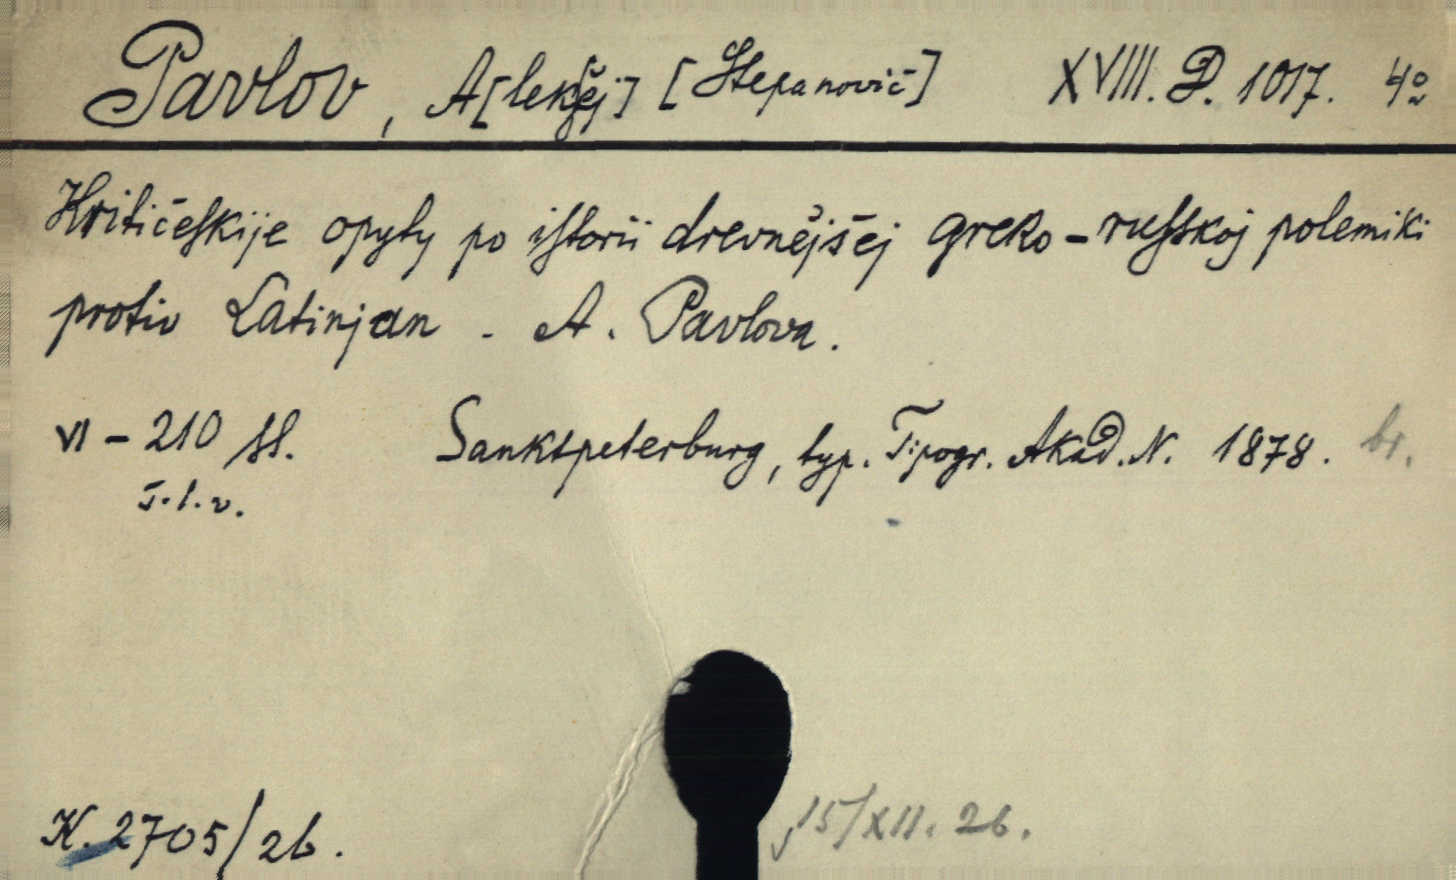 Pavlov, A[leksěj] [Stepanovič] XVIII. D. 1017. 4º
Kritičeskije opyty po istorii drevnějšej greko-russkoj polemiki
protiv Latinjan. A. Pavlova.
VI - 210 ss. Sanktpeterburg, typ. Tipogr. Akad. N. 1878. br.
K. 2705/26. 15/XII. 26.